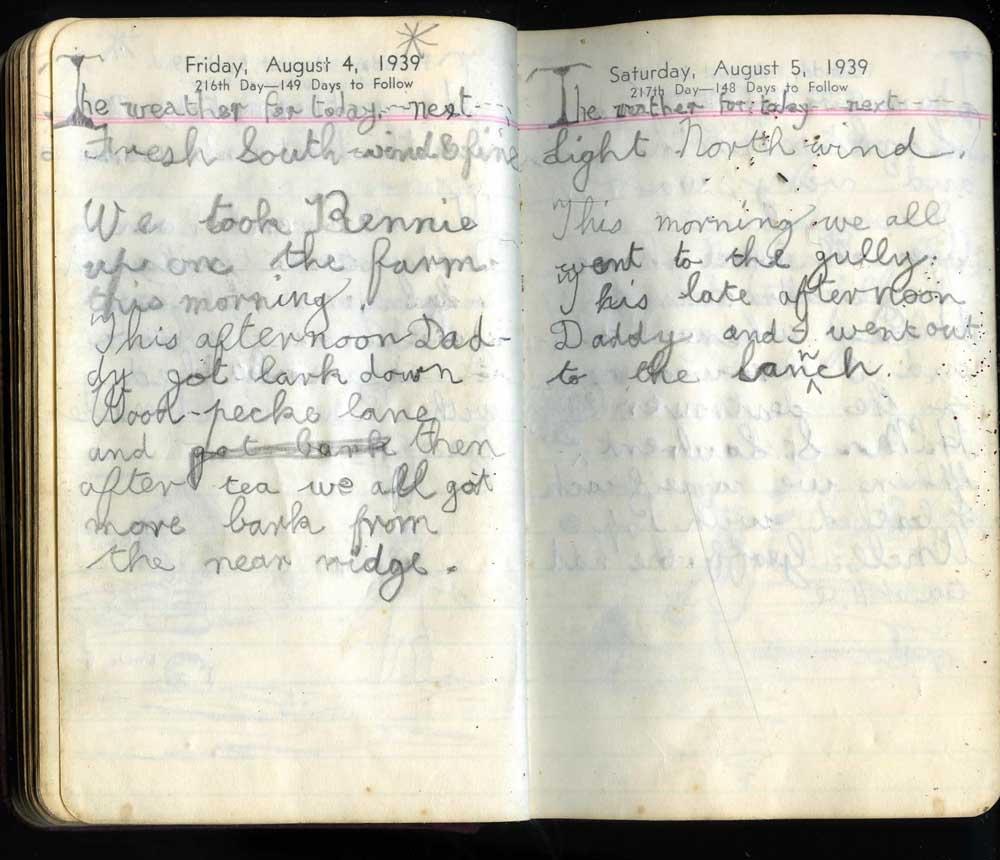 Friday, August 4, 1939
216th Day—149 Days to Follow
The weather for today.—next---
Fresh South wind & fine
We took Rennie
up on the farm.
this morning.
This afternoon Dad-
dy got bark down
Wood-pecke lane
and got bark then
after tea we all got
more bark from
the near ridge.
Saturday, August 5, 1939
217th Day—148 Days to Follow
The weather for today next----
Light North wind.
This morning we all
went to the gully.
This late afternoon
Daddy and I went out
to the launch.